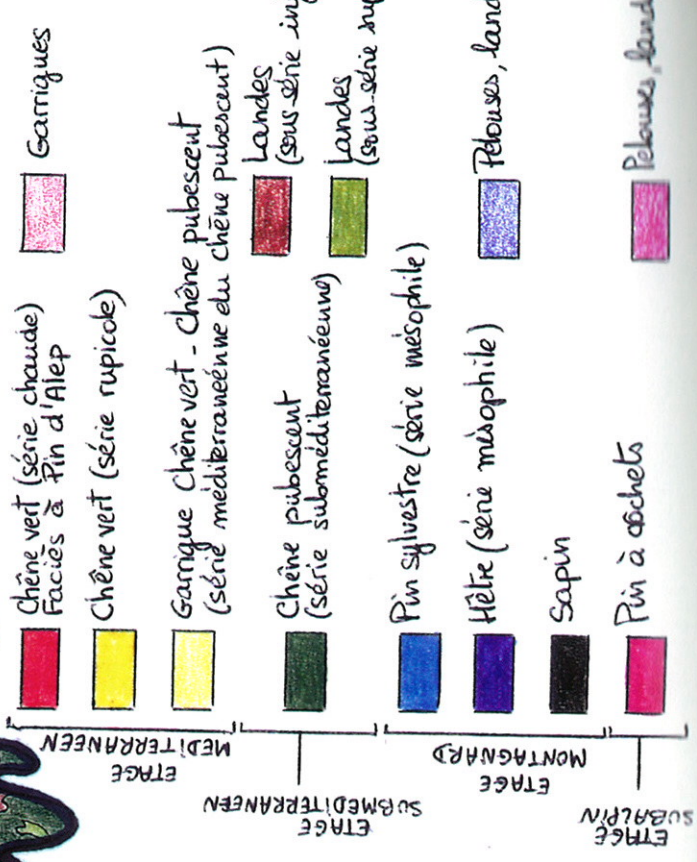 ETAGE
MEDITERRANEEN
Chêne vert (série chaude)
Faciès à Pin d'Alep
Garrigues
Chêne vert (série rupicole)
Garrigue Chêne vert - Chêne pubescent
(série méditerranéenne du chêne pubescent)
ETAGE
SUBMEDITERRANEEN
Chêne pubescent
(série subméditerranéenne)
Landes
(sous-série in
Landes
(sous-série sup
ETAGE
MONTAGNARD
Pin sylvestre (série mésophile)
Hêtre (série mésophile)
Pelouses, land
Sapin
ETAGE
SUBALPIN
Pin à crochets
Pelouses, land